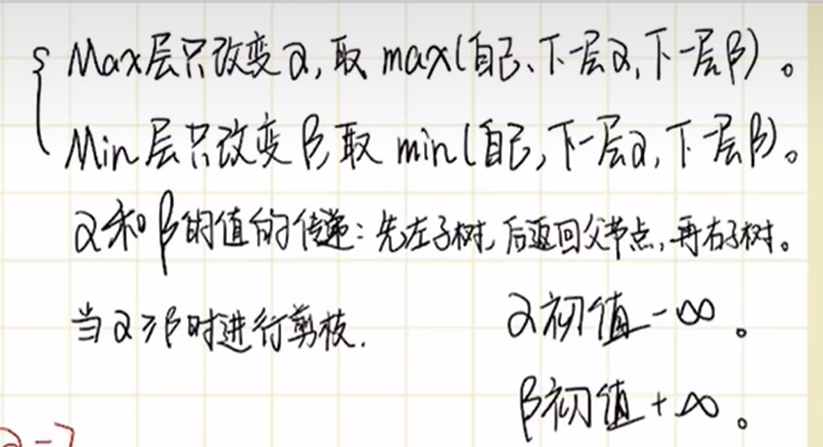 Max层只改变α,取 max(自己、下一层α,下一层β)。
Min层只改变β,取 min(自己,下一层α,下一层β)。
α和β的值的传递:先左子树,后返回父节点,再右子树。
当α≥β时进行剪枝.
α初值-∞。
β初值+∞。